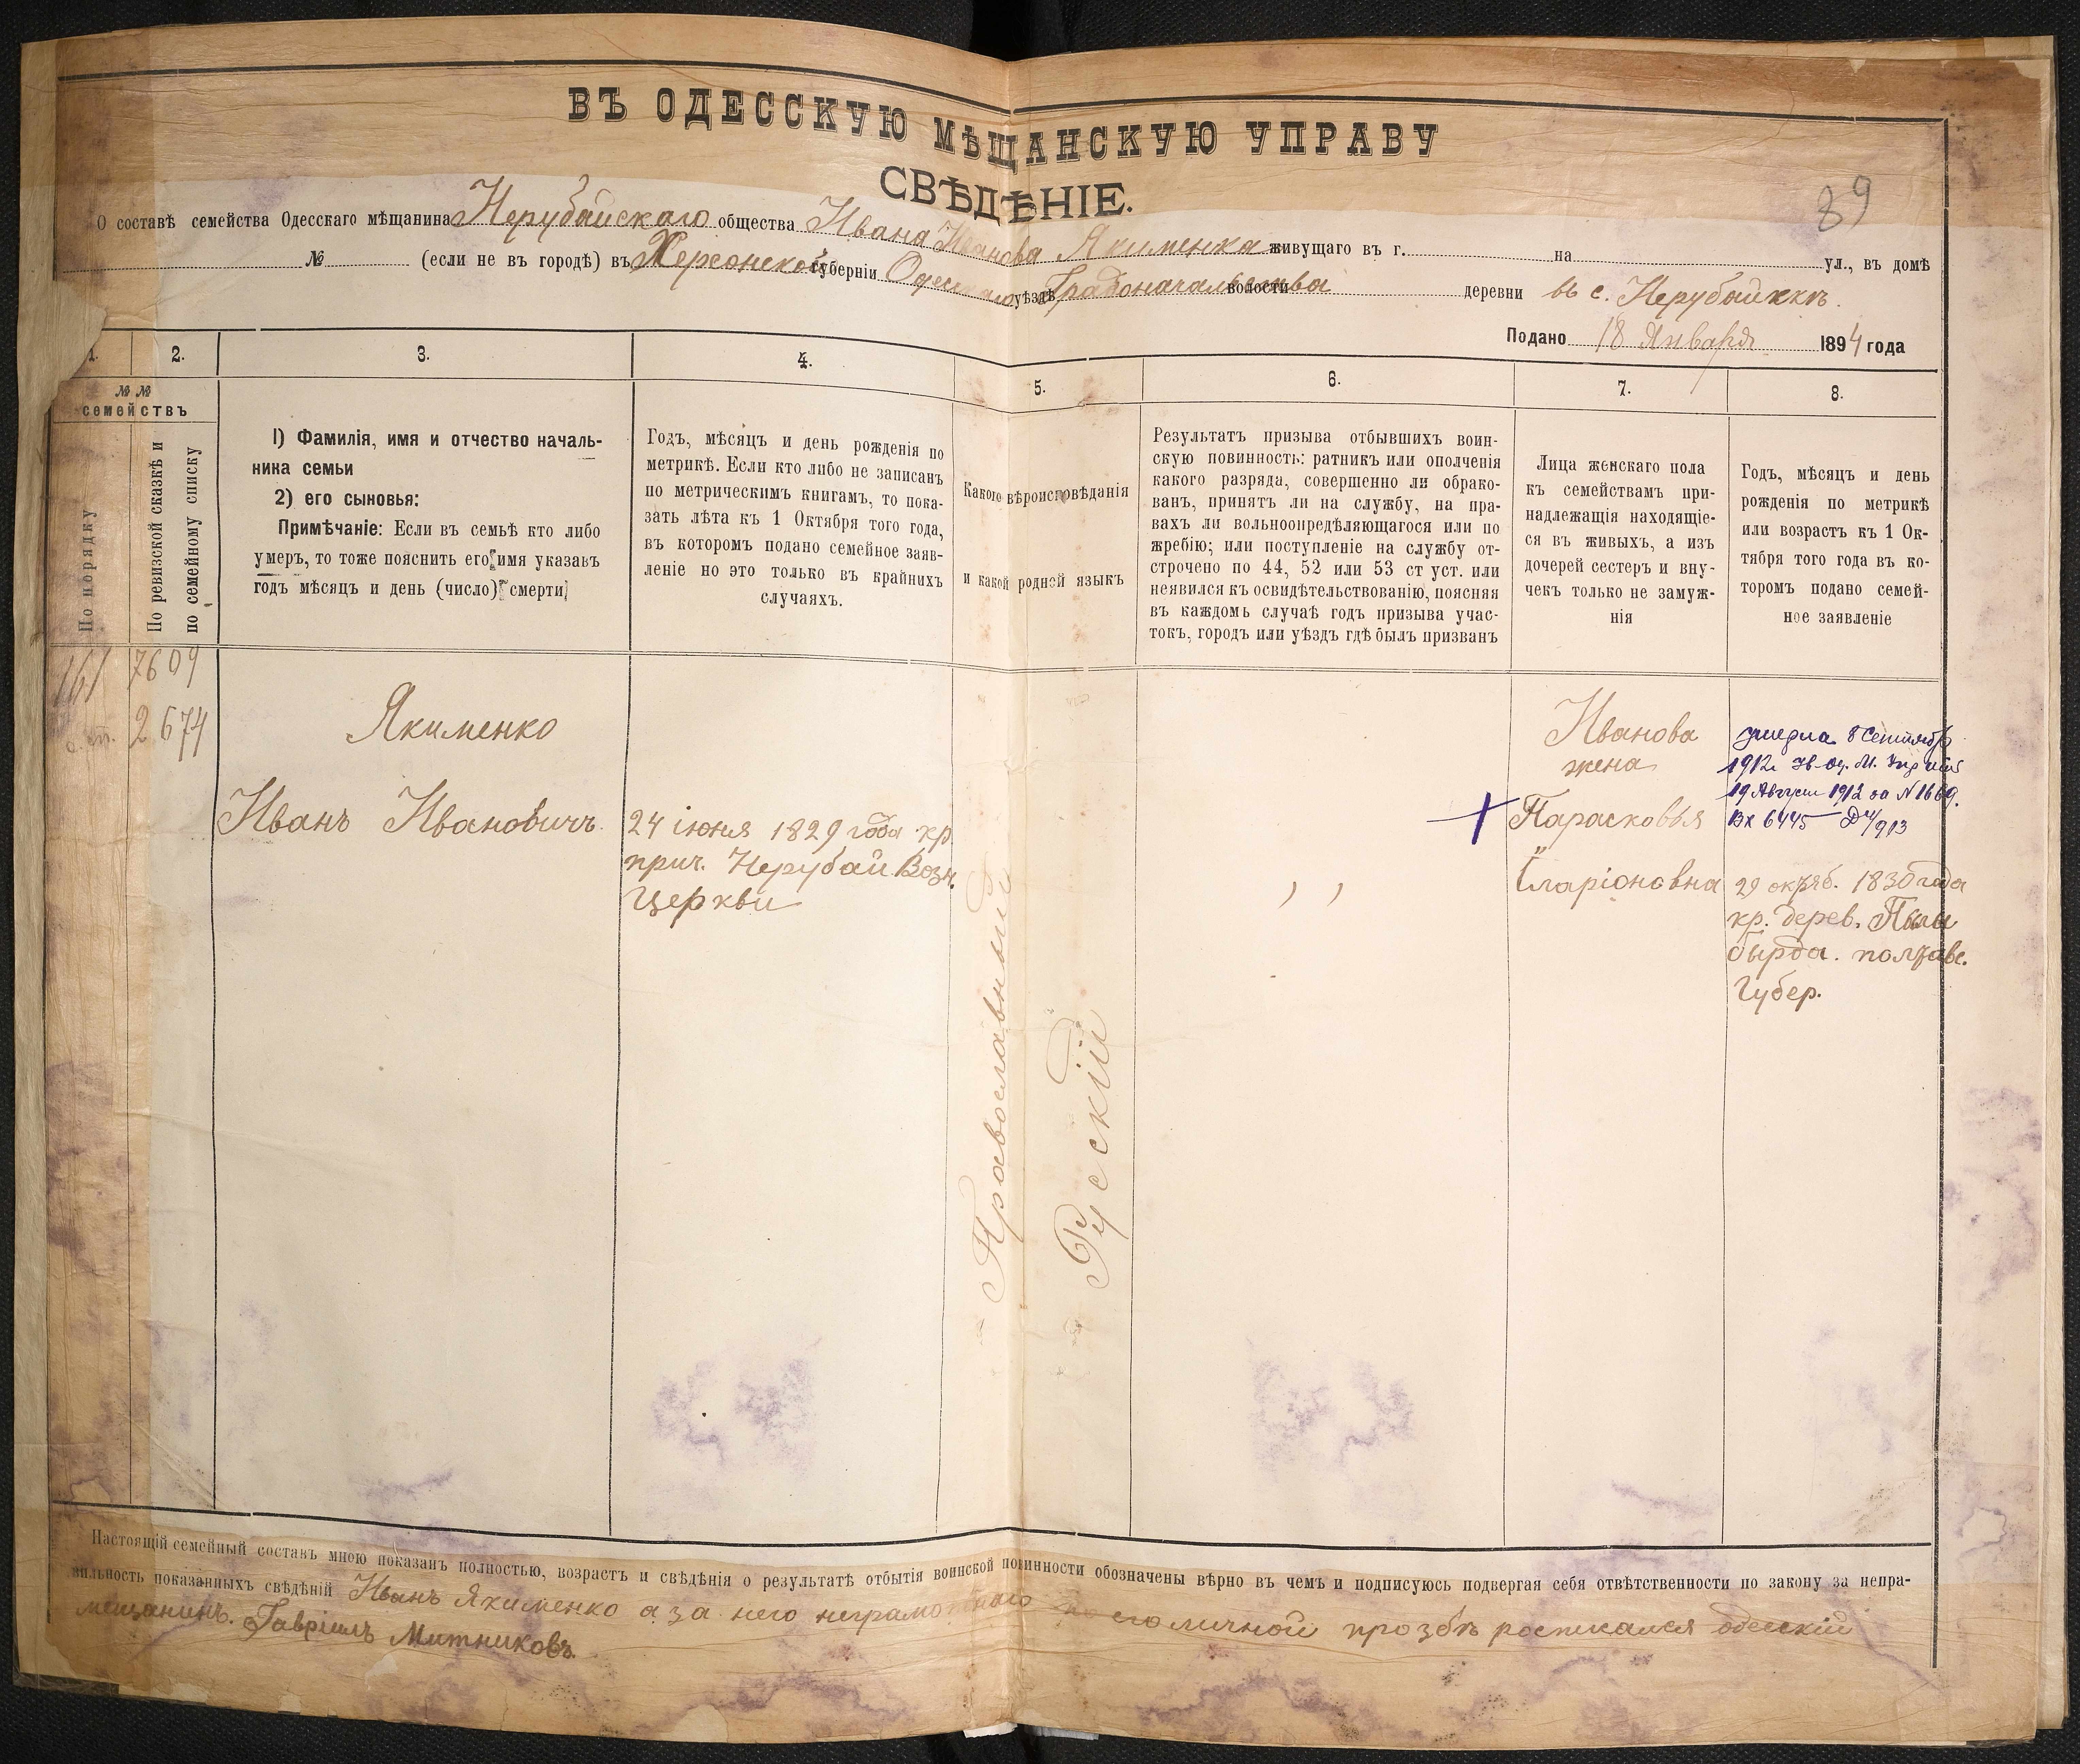 ВЪ ОДЕССКУЮ МѢЩАНСКУЮ УПРАВУ
СВѢДѢНІЕ.
89
О составѣ семейства Одесскаго мѣщанина Нерубайскаго общества Ивана Иванова Якименка живущаго въ г. на ул., въ домѣ
№ (если не въ городѣ) въ Херсонской губерніи Одесскаго уѣздѣ Градоначальства волости деревни въ с. Нерубайкхъ.
Подано 18 Января 1894 года
1.
2.
3.
4.
5.
6.
7.
8.
№ №
семействъ
По порядку
По ревизской сказкѣ и
по семейному списку
1) Фамилія, имя и отчество началь-
ника семьи
2) его сыновья:
Примѣчаніе: Если въ семьѣ кто либо
умеръ, то тоже пояснить его имя указавъ
годъ мѣсяцъ и день (число) смерти
Годъ, мѣсяцъ и день рожденія по
метрикѣ. Если кто либо не записанъ
по метрическимъ книгамъ, то пока-
зать лѣта къ 1 Октября того года,
въ которомъ подано семейное заяв-
леніе но это только въ крайнихъ
случаяхъ.
Какого вѣроисповѣданія
и какой родной языкъ
Результатъ призыва отбывшихъ воин-
скую повинность: ратникъ или ополченія
какого разряда, совершенно ли обрако-
ванъ, принятъ ли на службу, на пра-
вахъ ли вольноопредѣляющагося или по
жребію; или поступленіе на службу от-
строчено по 44, 52 или 53 ст уст. или
неявился къ освидѣтельствованію, поясняя
въ каждомъ случаѣ годъ призыва учас-
токъ, городъ или уѣздъ гдѣ былъ призванъ
Лица женскаго пола
къ семействамъ при-
надлежащія находящіе-
ся въ живыхъ, а изъ
дочерей сестеръ и вну-
чекъ только не замуж-
нія
Годъ, мѣсяцъ и день
рожденія по метрикѣ
или возрастъ къ 1 Ок-
тября того года въ ко-
торомъ подано семей-
ное заявленіе
161
7609
2674
Якименко
Иванъ Ивановичъ.
24 іюня 1829 года кр.
прич. Нерубай Возн.
Церкви
Православный
Русскій
Иванова
жена
Парасковья
Іларіоновна
умерла 8 Сентября
1912
19 Августа 1912 за N 1669.
Вх 6445
29 октяб. 1830 года
кр. дерев.
полтавс.
Губер.
Настоящій семейный составъ мною показанъ полностью, возрастъ и свѣдѣнія о результатѣ отбытія воинской повинности обозначены вѣрно въ чемъ и подписуюсь подвергая себя отвѣтственности по закону за непра-
вильность показанныхъ свѣдѣній Иванъ Якименко а за него неграмотнаго по его личной прозбѣ росписался одесскій
мещанинъ. Гавріилъ Митниковъ.